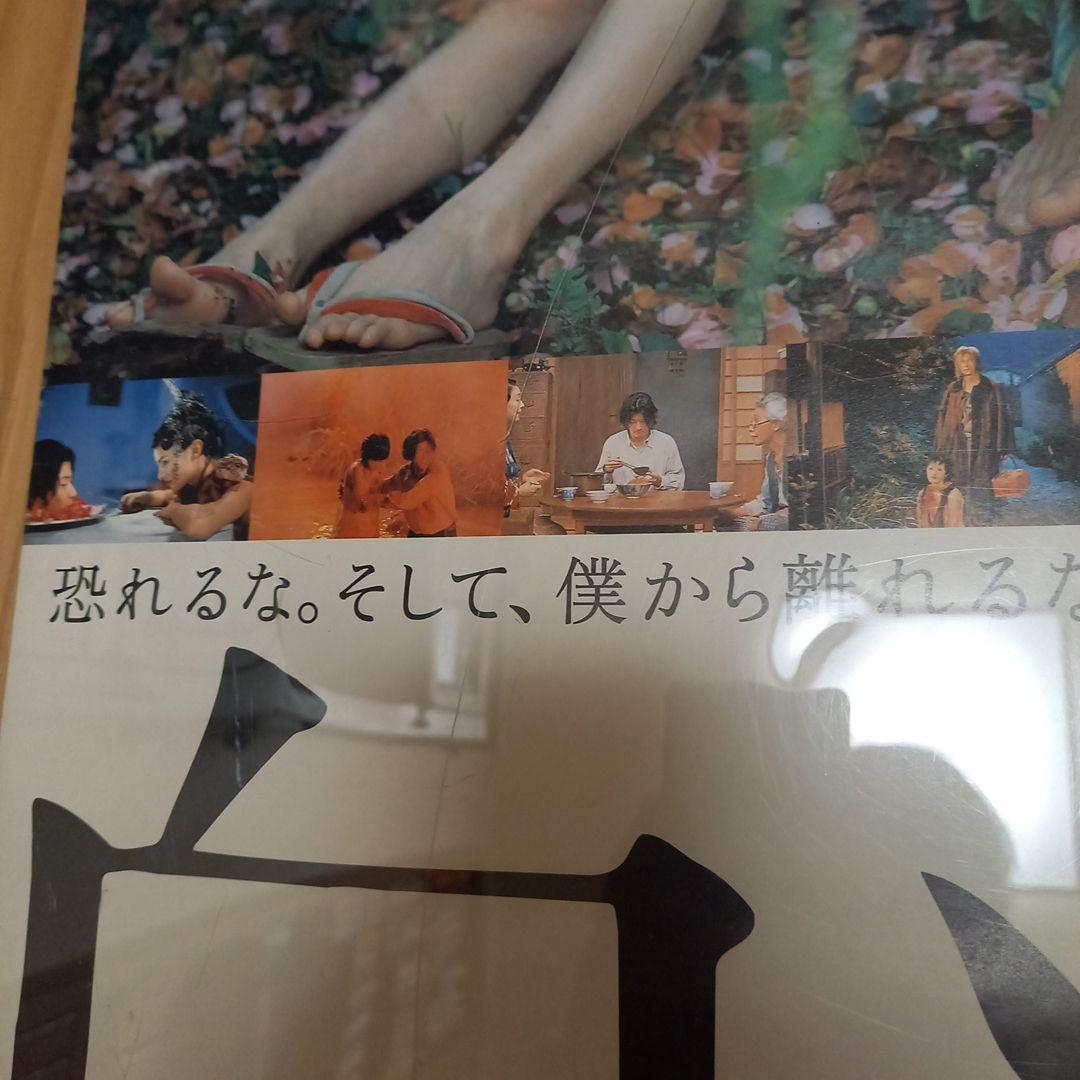 恐れるな。そして、僕から離れるな